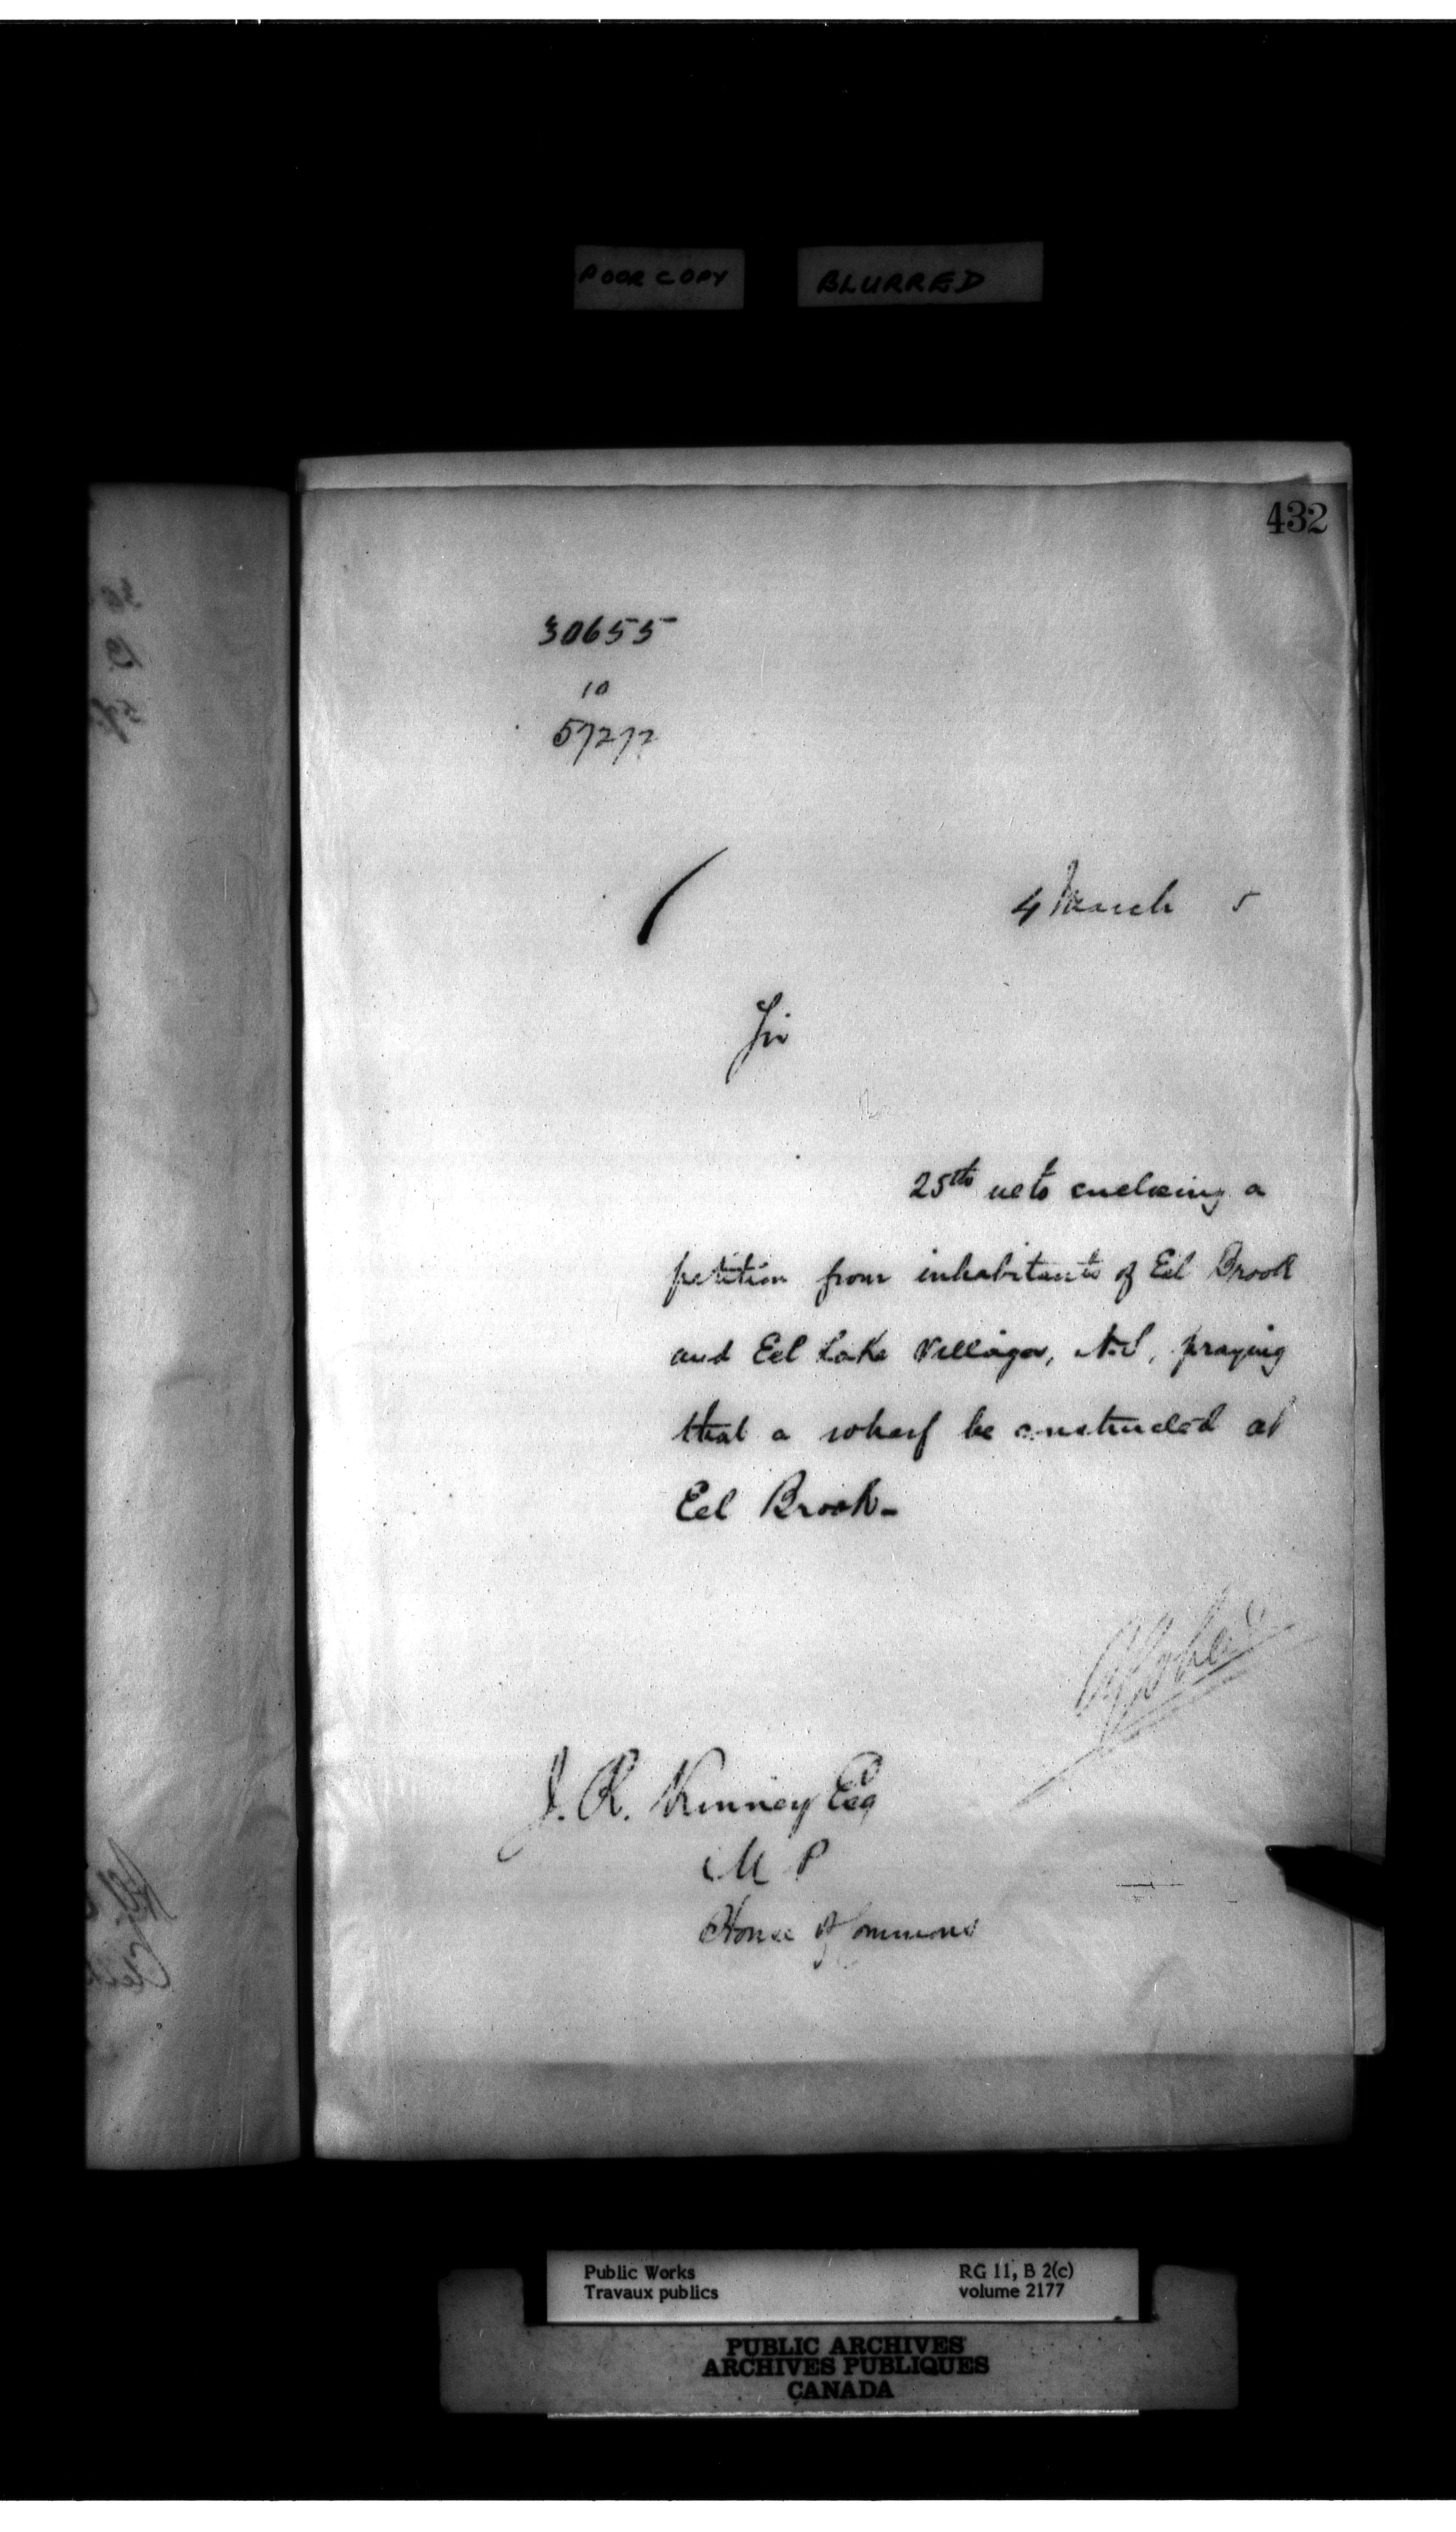 POOR COPY BLURRED
432
30655
10
57272
4 March 5
Sir
25th ulto enclosing a
petition from inhabitants of Eel Brook
and Eel Lake Villages, N.S, praying
that a wharf be constructed at
Eel Brook-
J. R. Kinney Esq
M P
House of Commons
Public Works RG 11, B 2(c)
Travaux publics volume 2177
PUBLIC ARCHIVES
ARCHIVES PUBLIQUES
CANADA